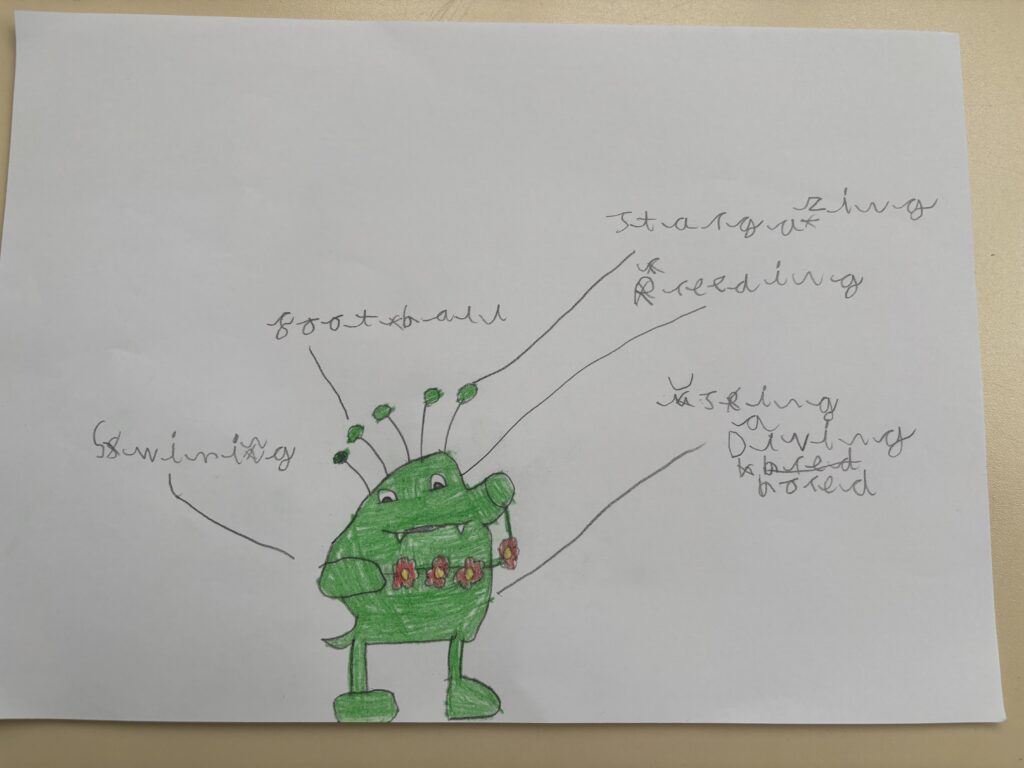 stargazing
reeding
football
using
a
Diving
bored
Swiming